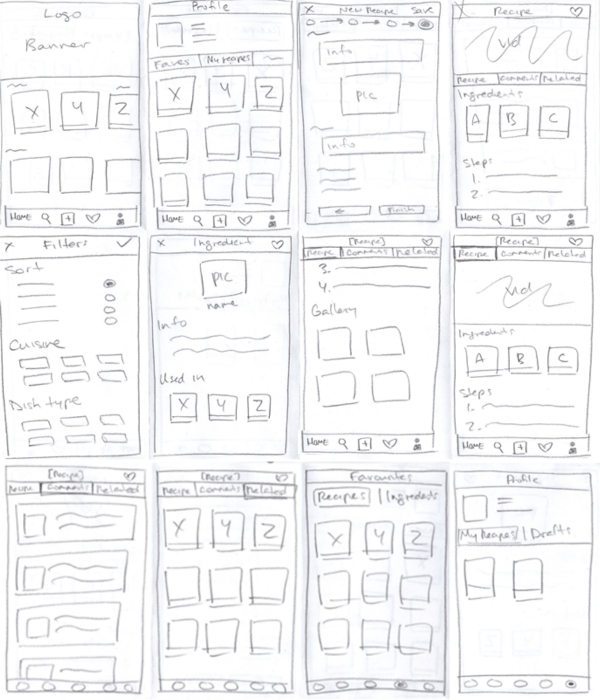 Logo
Banner
X Y Z
HOME
Profile
Faves My recipes
X Y Z
HOME
X New Recipe Save
Info
pic
Info
Finish
X Recipe
vid
Recipe Comments Related
Ingredients
A B C
Steps
1.
2.
HOME
X Filters
Sort
Cuisine
Dish type
X Ingredient
pic
name
Info
Used in
X Y Z
[Recipe]
Recipe Comments Related
3.
4.
Gallery
HOME
[Recipe]
Recipe Comments Related
vid
Ingredients
A B C
Steps
1.
2.
HOME
[Recipe]
Recipe Comments Related
[Recipe]
Recipe Comments Related
X Y Z
Favourites
Recipes | Ingredients
X Y Z
Profile
My Recipes | Drafts